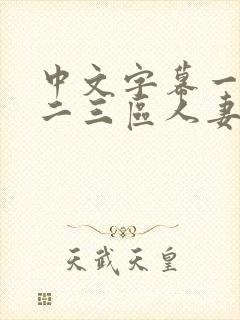 中文字幕一
二三區人妻
天武天皇